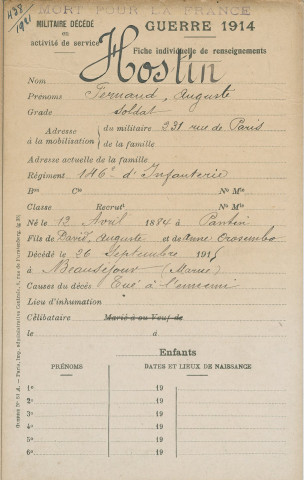 428/1921
MORT POUR LA FRANCE
MILITAIRE DÉCÉDÉ
en
activité de service
GUERRE 1914
Fiche individuelle de renseignements
Nom Hostin
Prénoms Fernand, Auguste
Grade Soldat
Adresse à la mobilisation { du militaire 231 rue de Paris
de la famille
Adresse actuelle de la famille
Régiment 146e d'Infanterie
Bon Cie No Mle
Classe Recrut No Mle
Né le 12 Avril 1884 à Pantin
Fils de David, Auguste et de Anne
Décédé le 26 Septembre 1915
à Beauséjour (Marne)
Causes du décès Tué à l'ennemi
Lieu d'inhumation
Célibataire Marié à ou Veuf de
le à
Enfants
PRÉNOMS DATES ET LIEUX DE NAISSANCE
1o 19
2o 19
3o 19
4o 19
5o 19
6o 19